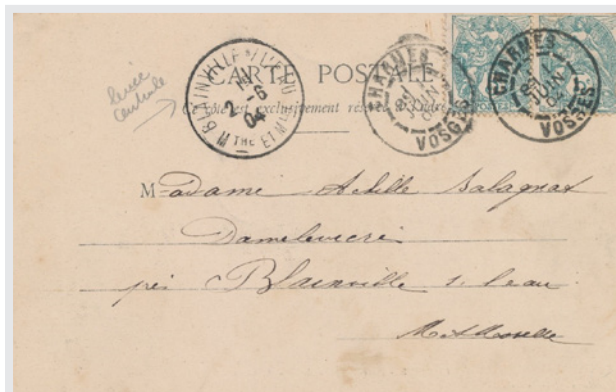 CARTE POSTALE
Ce côté est exclusivement réservé à l'adresse
BLAINVILLE-S-L'EAU
2-6
04
M THE ET M LLE
CHARMES
JUIN
VOSGES
CHARMES
JUIN
VOSGES
Madame Achille
Damelevières
près Blainville s. l'eau
M. et Moselle